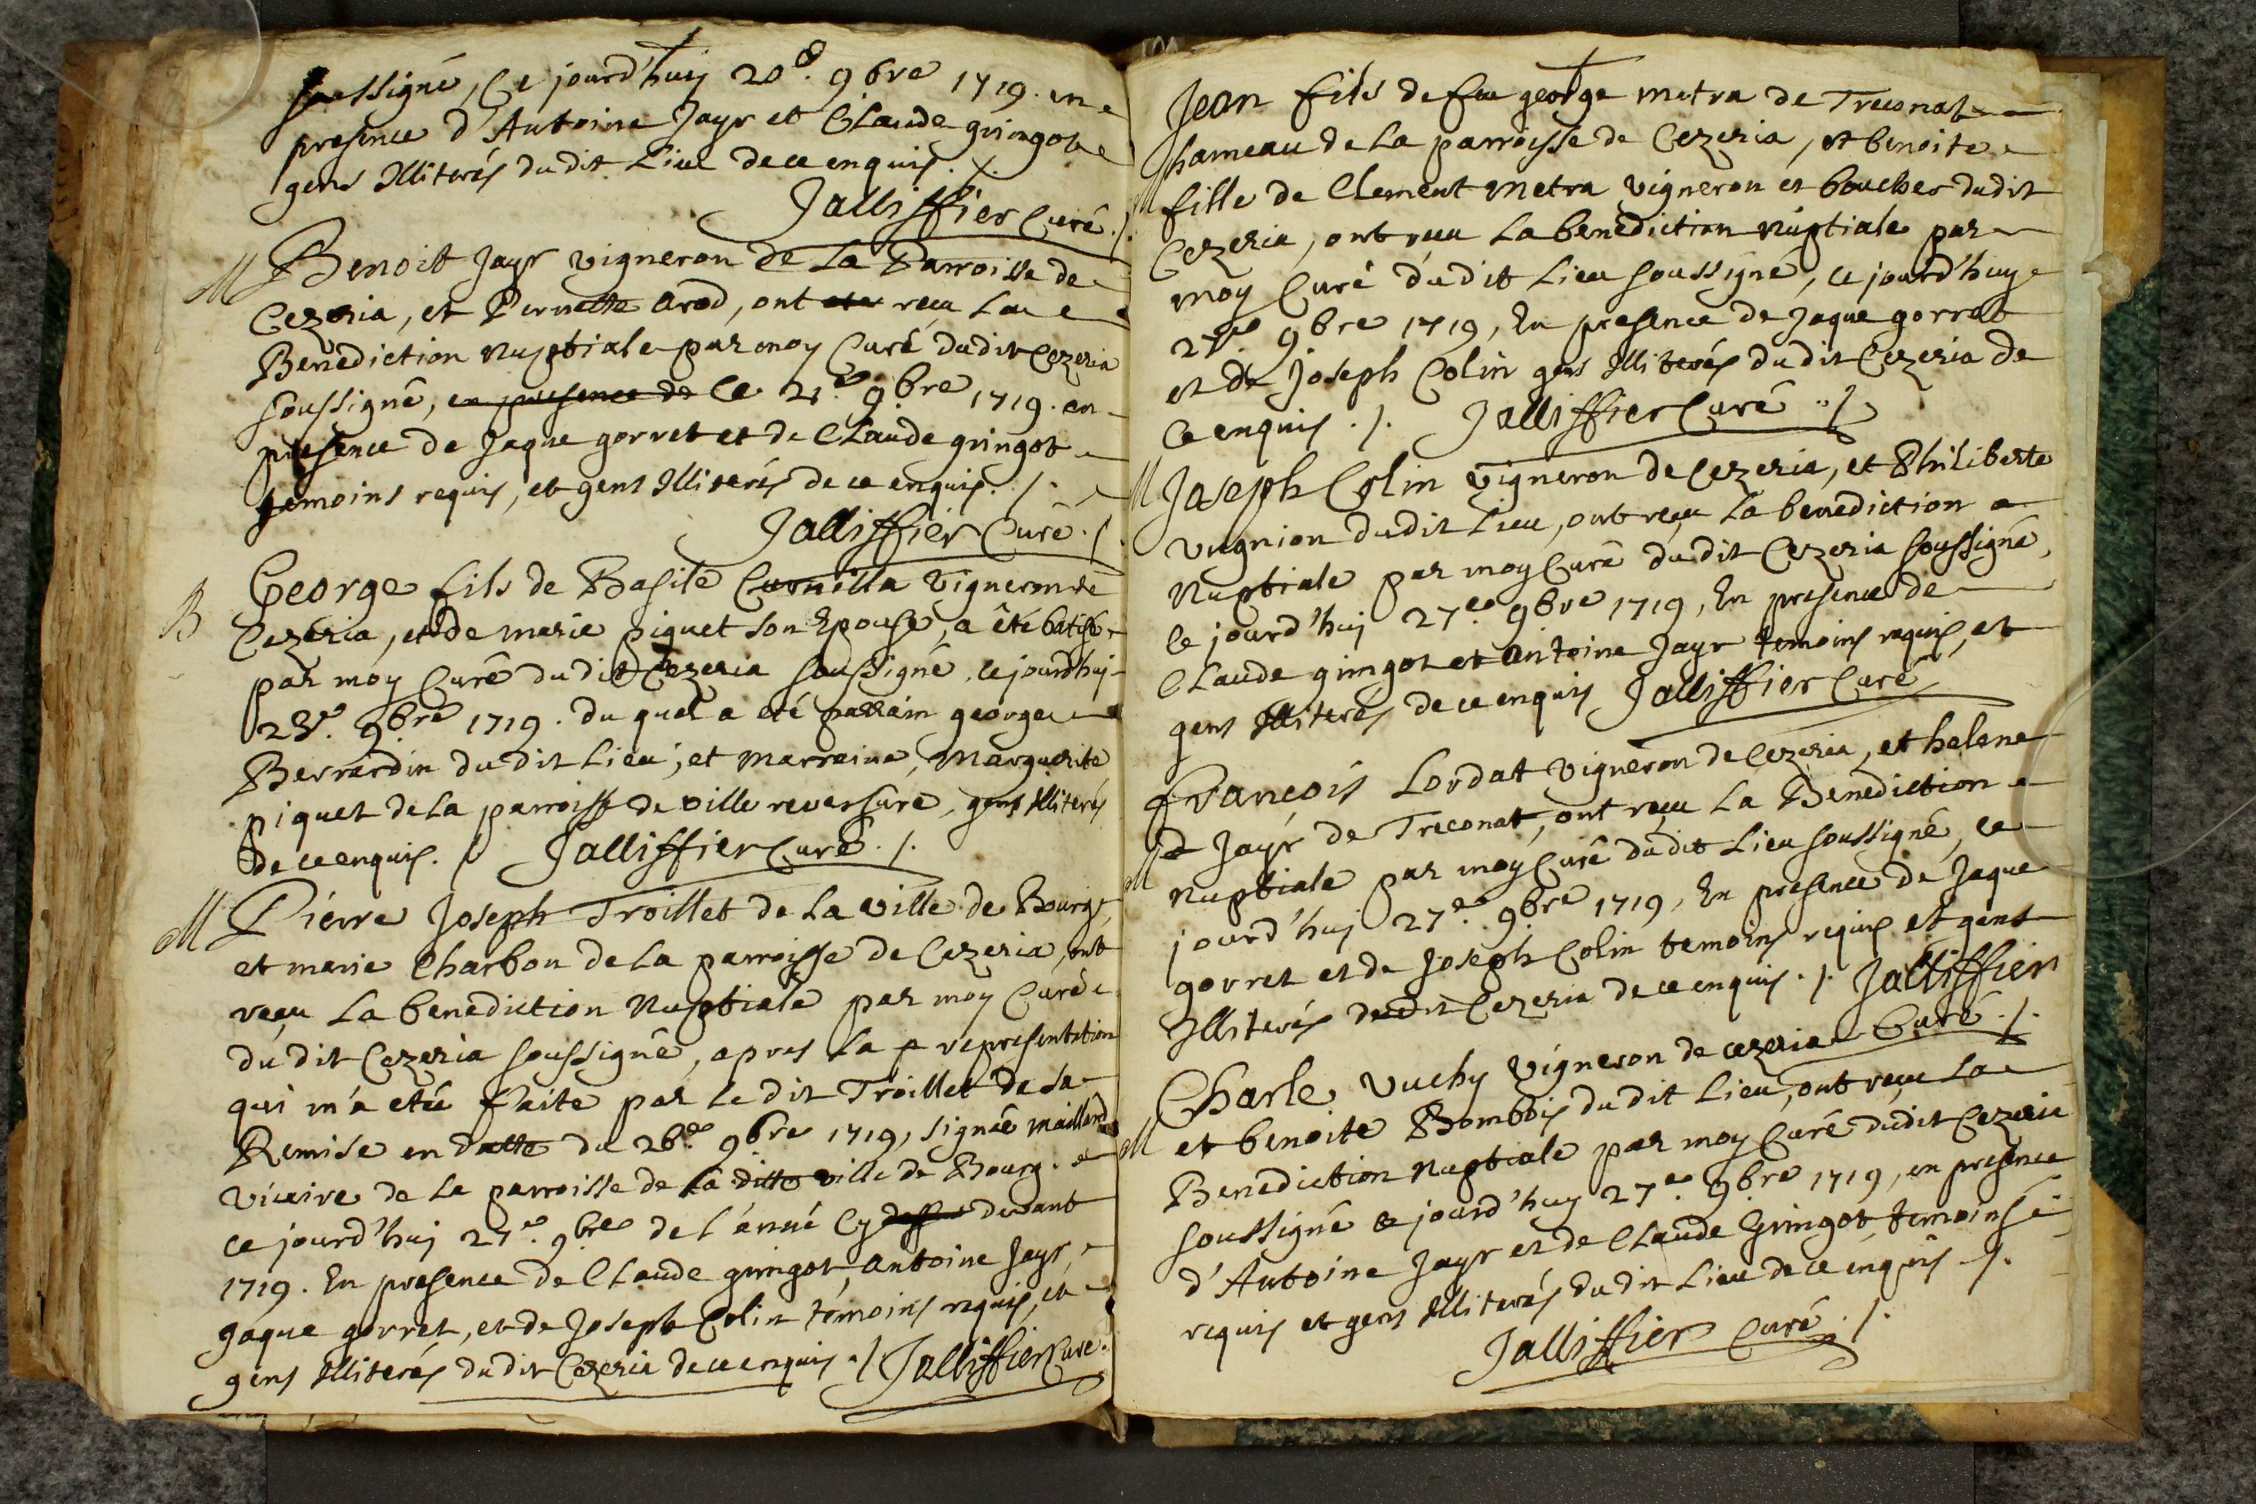 soussigné, Ce jourd'huy 20e. 9bre 1719. en
presence d'Antoine Jayr et Claude gringot
gens Illiterés du dit Lieu de ce enquis ./.
Jalliffier Curé ./.
M Benoit Jayr vigneron de La Parroisse de
Cezeria, et Pernette Arod, ont eteé recu La
Benediction Nuptiale par moy Curé du dit Cezeria
soussigné, en presence de Ce 21e. 9bre 1719. en
presence de Jaque gorret et de Claude gringot
temoins requis, et gens Illiterés de ce enquis. /.
Jalliffier Curé ./.
B George fils de Basile Cornilla Vigneron de
Cezeria, et de marie piquet son Epouse, a été batisé
par moy Curé du dit Cezeria soussigné, ce jourd'huj
23e. 9bre 1719. du quel a eté parrain george
Berrardin du dit Lieu, et Marraine, Marguerite
piquet de La parroisse de ville reversure, gens Illiterés
de ce enquis. / Jalliffier Curé ./.
M Pierre Joseph Troillet de La ville de Bourg,
et marie Charbon de La parroisse de Cezeria, ont
reçu La benediction Nuptiale par moy Curé
du dit Cezeria soussigné, apres La representation
qui m'a eteé faite par Le dit Troillet de sa
Remise en datte du 26e. 9bre 1719, signée maillard
vicaire de La parroisse de La ditte ville de Bourg. et
ce jourd'huj 27e. 9bre de l'année Cy dessu devant
1719. En presence de Claude gringot, Antoine Jayr,
Jaque gorret, et de Joseph Colin temoins requis, et
gens Illiterés du dit Cezeria de ce enquis ./ Jalliffier Curé.
Jean fils de feu george metra de Treconat
hameau de La parroisse de Cezeria, et benoite
M fille de Clement metra vigneron et boucher du dit
Cezeria, ont reçu La benediction Nuptiale par
moy Curé du dit Lieu soussigné, ce jourd'huy
27e 9bre 1719, En presence de Jaque gorret
et de Joseph Colin gens Illiterés du dit Cezeria de
ce enquis ./. Jalliffier Curé ./.
M Joseph Colin vigneron de Cezeria, et Philiberte
vugnion du dit Lieu, ont reçu La benediction
Nuptiale par moy Curé du dit Cezeria soussigné,
ce jourd'huj 27e. 9bre 1719, En presence de
Claude gringot et Antoine Jayr temoins requis, et
gens Illiterés de ce enquis Jalliffier Curé
François Lordat vigneron de Cezeria, et helene
Jayr de Treconat, ont reçu La Benediction
M Nuptiale par moy Curé du dit Lieu soussigné, ce
jourd'huj 27e. 9bre 1719, En presence de Jaque
gorret et de Joseph Colin temoins requis et gens
Illiterés du dit Cezeria de ce enquis ./. Jalliffier
Curé ./.
Charle vuchy vigneron de cezeria
M et benoite Bombois du dit Lieu, ont reçu La
Benediction Nuptiale par moy Curé du dit Cezeria
soussigné ce jourd'huy 27e. 9bre 1719, en presence
d'Antoine Jayr et de Claude Gringot temoins
requis et gens Illiterés du dit Lieu de ce enquis ./.
Jalliffier Curé ./.